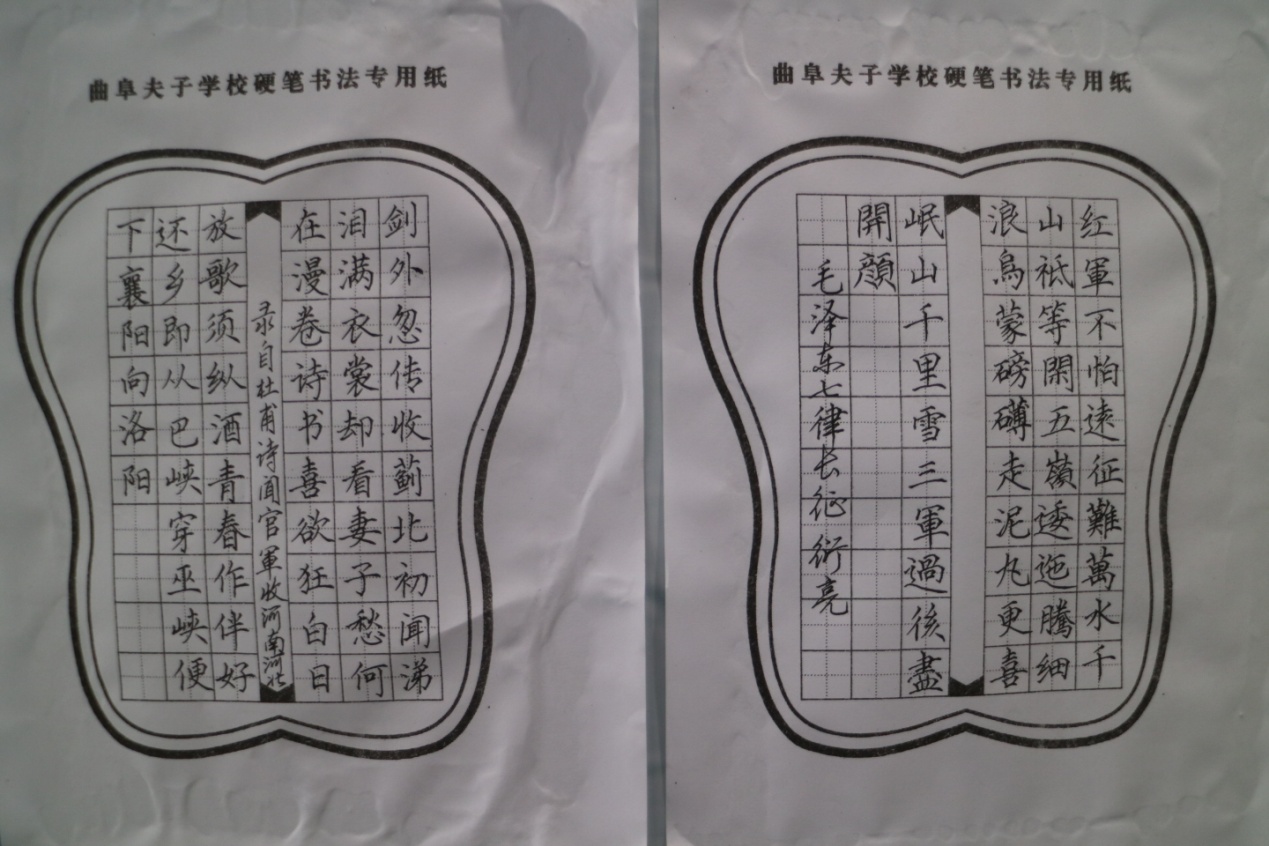 曲阜夫子学校硬笔书法专用纸
剑外忽传收蓟北初闻涕
泪满衣裳却看妻子愁何
在漫卷诗书喜欲狂白日
录自杜甫诗闻官軍收河南河北
放歌须纵酒青春作伴好
还乡即从巴峡穿巫峡便
下襄阳向洛阳
曲阜夫子学校硬笔书法专用纸
红軍不怕遠征難萬水千
山祗等閑五嶺逶迤騰細
浪烏蒙磅礴走泥丸更喜
岷山千里雪三軍過後盡
開顔
毛泽东七律长征衍亮